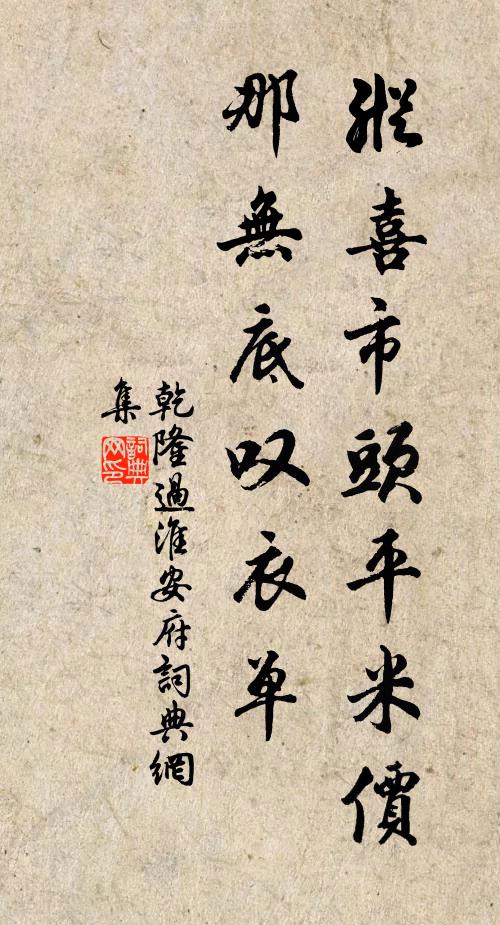 縱喜市頭平米價
那無底叹衣单
乾隆過淮安府詞典網
集
詞典網印